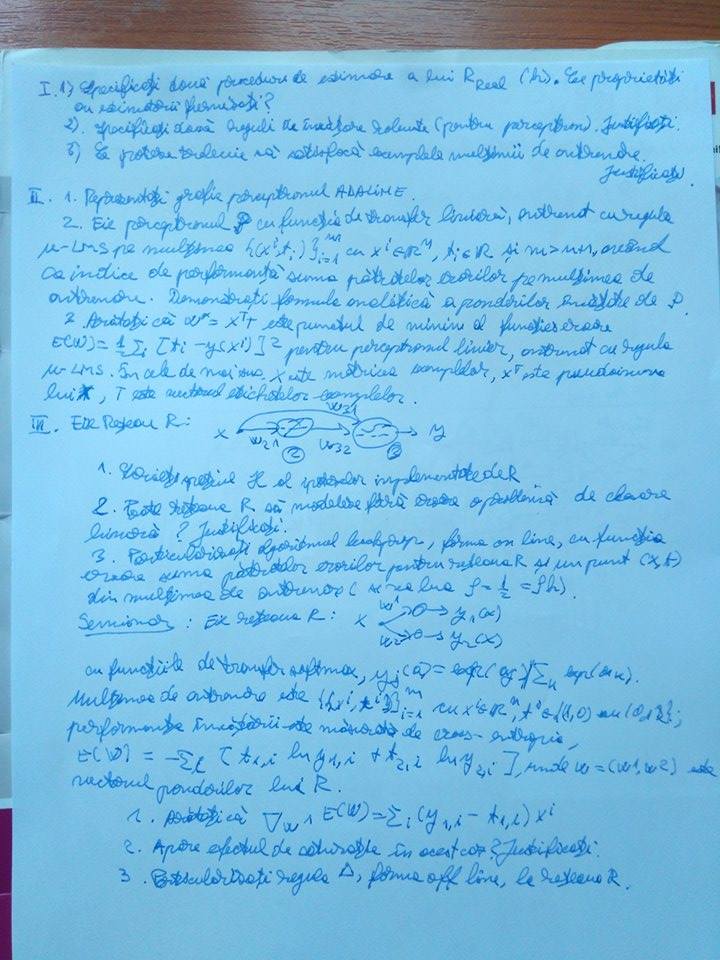 I. 1) Specificați două proceduri de estimare a lui R_Real (h). Ce proprietăți
au estimatorii furnizați?
2) Specificați două reguli de învățare (pentru perceptron). Justificați.
3) Ce trebuie să satisfacă exemplele mulțimii de antrenare.
Justificați.
II. 1. Reprezentați grafic perceptronul ADALINE.
2. Fie perceptronul P cu funcția de transfer liniară, antrenat cu regula
μ-LMS pe mulțimea {(x^i, t_i)}_{i=1}^m cu x^i ∈ R^n, t_i ∈ R și m > n+1, având
ca indice de performanță suma pătratelor erorilor pe mulțimea de
antrenare. Demonstrați formula analitică a ponderilor învățate de P.
2. Arătați că w* = X^+T este punctul de minim al funcției eroare
E(W) = ½ Σ_i [t_i - y(x^i)]² pentru perceptronul liniar, antrenat cu regula
μ-LMS. În cele de mai sus, X este matricea exemplelor, X^+ este pseudoinversa
lui X, T este vectorul etichetelor exemplelor.
III. Fie Rețeaua R: x w21 2 w32 w31 3 y
1. spațiul H al ipotezelor implementate de R
2. Poate rețeaua R să modeleze fără eroare o problemă de clasare
liniară? Justificați.
3. Particularizați algoritmul backprop, forma on line, cu funcția
eroare suma pătratelor erorilor pentru rețeaua R și un punct (x,t)
din mulțimea de antrenare (se va lua ρ = ½ = ρh).
Seminar: Fie rețeaua R: x w1 y1(x)
w2 y2(x)
cu funcțiile de transfer softmax, y_j(a) = exp(a_j)/Σ_k exp(a_k).
Mulțimea de antrenare este {(x^i, t^i)}_{i=1}^m cu x^i ∈ R^n, t^i ∈ {(1,0) sau (0,1)};
performanța învățării este măsurată de cross-entropia,
E(W) = -Σ_i [t_{1,i} ln y_{1,i} + t_{2,i} ln y_{2,i}], unde w = (w1, w2) este
vectorul ponderilor lui R.
1. Arătați că ∇_{w1} E(W) = Σ_i (y_{1,i} - t_{1,i}) x^i
2. Apare efectul de saturație în acest caz? Justificați.
3. Particularizați regula Δ, forma off line, la rețeaua R.